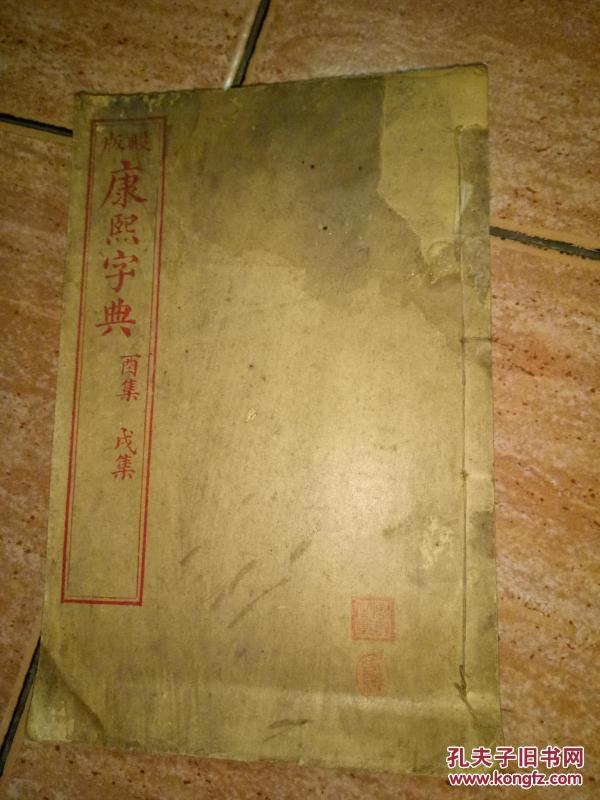 殿版
康熙字典
酉集 戌集
孔夫子旧书网
www.kongfz.com